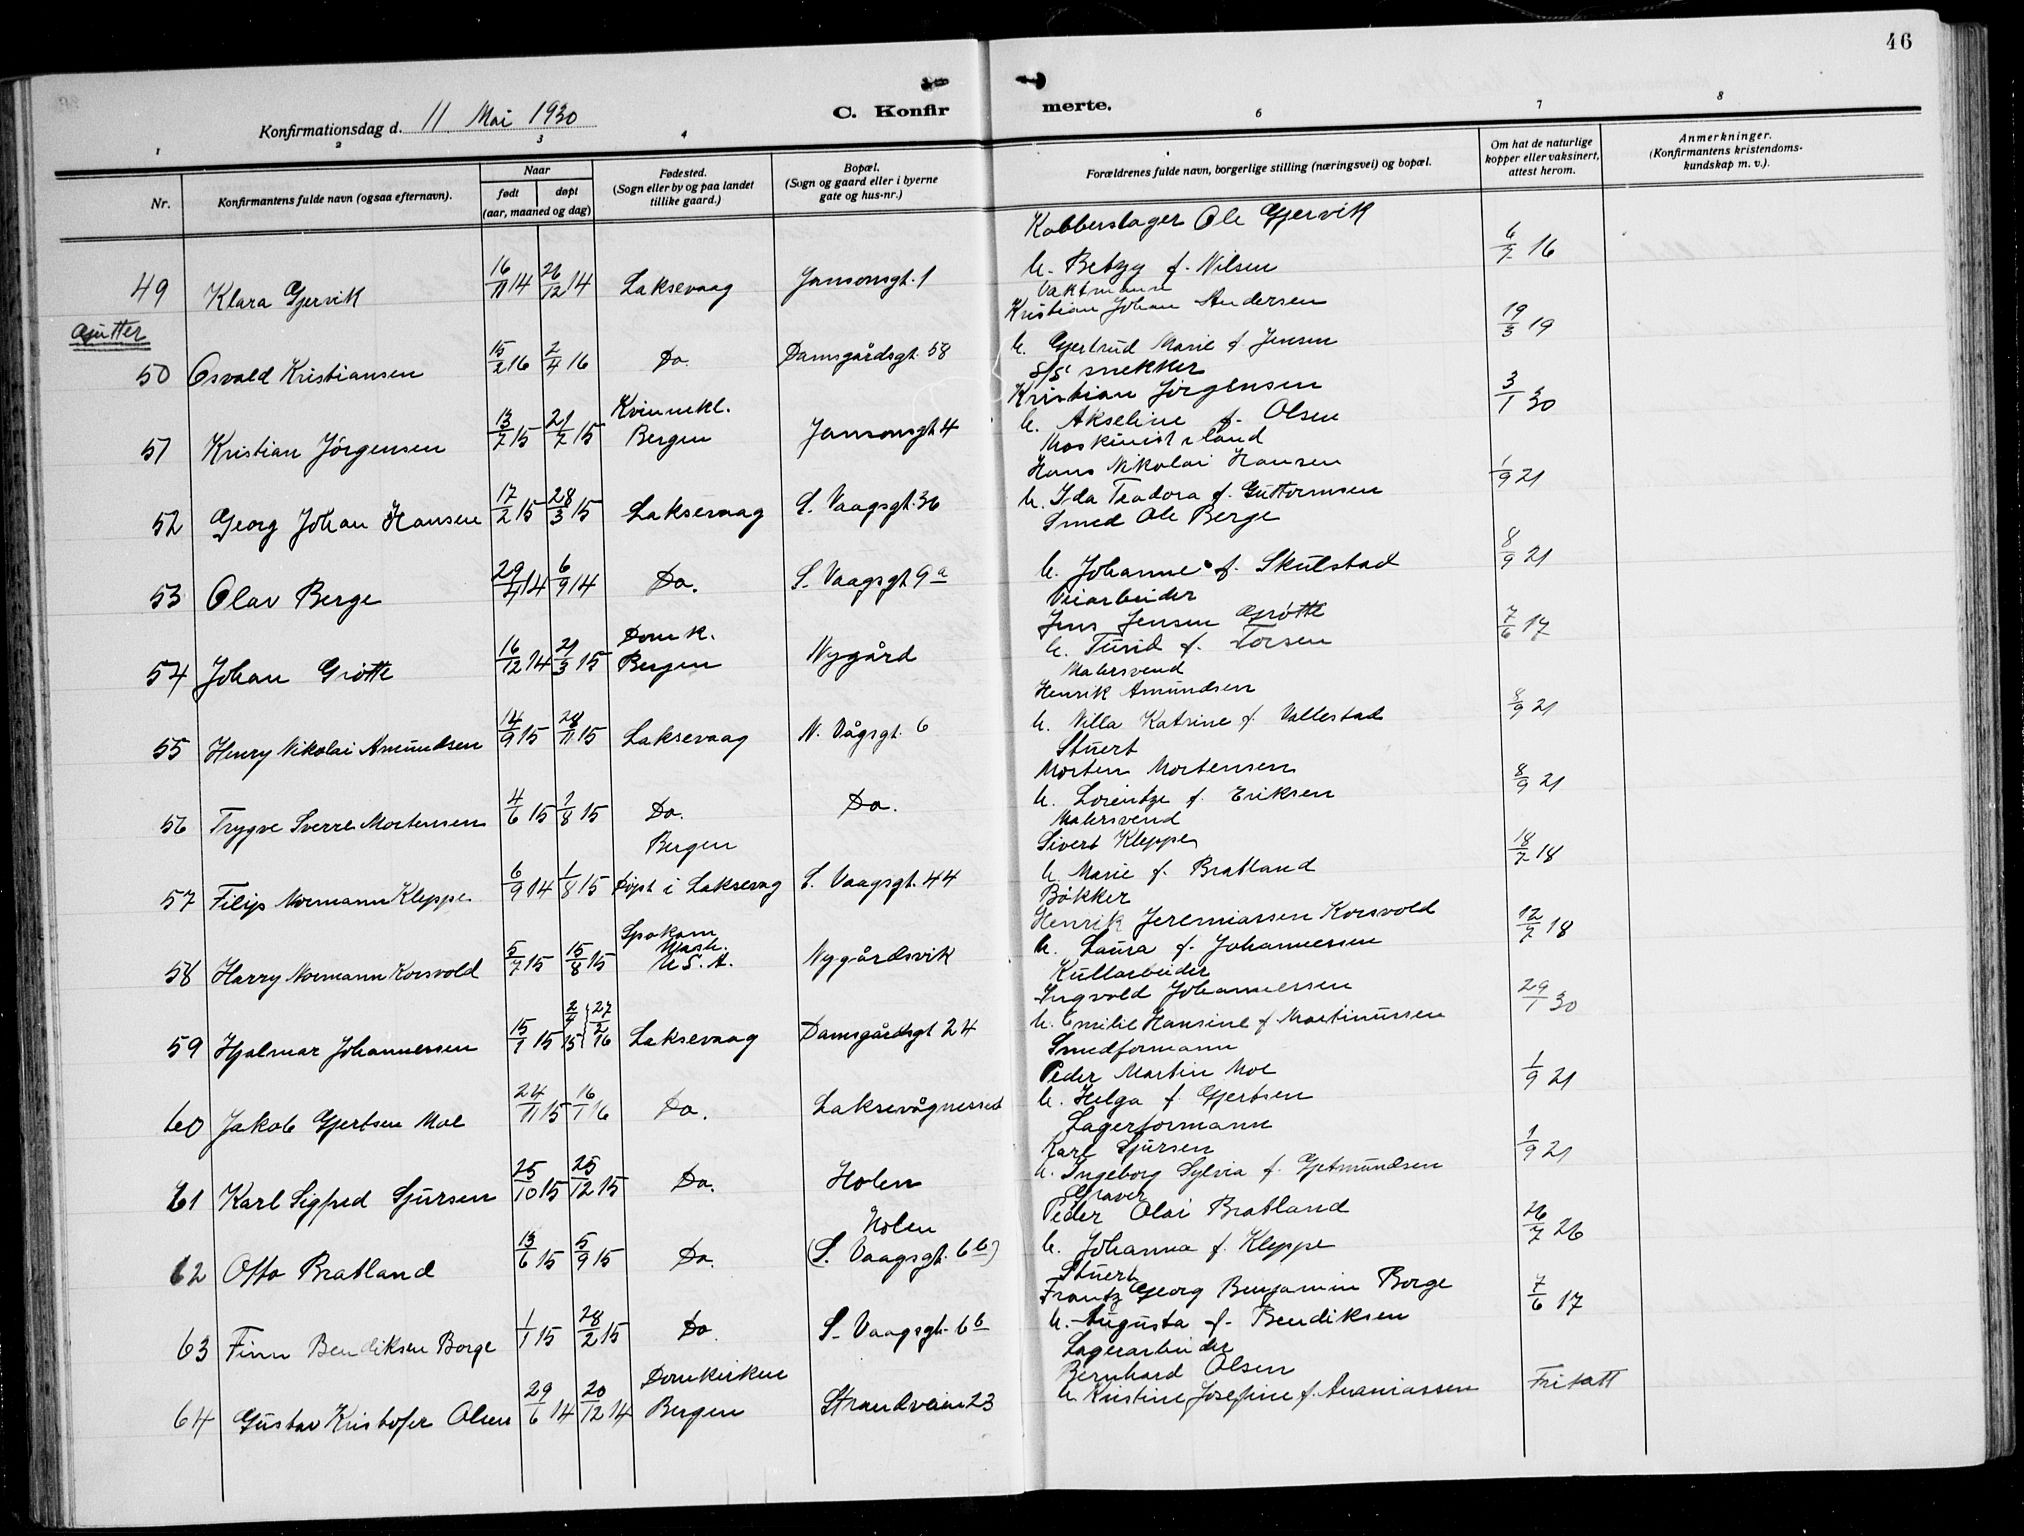 46
Konfirmationsdag d. 11 Mai 1930
C. Konfirmerte.
1 2 3 4 6 7 8
Nr.
Konfirmantens fulde navn (ogsaa efternavn).
Naar
født døpt
(aar, maaned og dag)
Fødested.
(Sogn eller by og paa landet
tillike gaard.)
Bopæl.
(Sogn og gaard eller i byerne
gate og hus-nr.)
Forældrenes fulde navn, borgerlige stilling (næringsvei) og bopæl.
Om hat de naturlige
kopper eller vaksinert,
attest herom.
Anmerkninger.
(Konfirmantens kristendoms-
kundskap m. v.).
Kobberslager Ole Gjervik
49 Klara Gjervik 16/11 14 26/12 14 Laksevaag Jansonsgt. 1 h. Betzy f. Nilsen 6/7 16
Gutter
Vaktmann
Kristian Johan Andersen
50 Osvald Kristiansen 15/2 16 2/4 16 Do. Damsgårdsgt. 58 h. Gjertrud Marie f. Jensen 19/3 19
S/S snekker
Kristian Jørgensen
51 Kristian Jörgensen 13/7 15 21/7 15 Kvinnekl. Bergen Jansonsgt 4 h. Akseline f. Olsen 3/1 30
Maskinist i land
Hans Nikolai Hansen
52 Georg Johan Hansen 17/2 15 28/3 15 Laksevaag S. Vaagsgt. 36 h. Ida Teodora f. Guttormsen 1/9 21
Smed Ole Berge
53 Olav Berge 29/4 14 6/9 14 Do. S. Vaagsgt 9a h. Johanne f. Skulstad 8/9 21
Veiarbeider
Jens Jensen Grøtte
54 Johan Grøtte 16/12 14 21/3 15 Domk. Bergen Nygård h. Turid f. Torsen 7/6 17
Malersvend
Henrik Amundsen
55 Henry Nikolai Amundsen 14/9 15 28/11 15 Laksevaag N. Vågsgt. 6 h. Villa Katrine f. Vallestad 8/9 21
Stuert
Morten Mortensen
56 Trygve Sverre Mortensen 4/6 15 1/8 15 Do. Do. h. Lorentze f. Eriksen 8/9 21
Malersvend
Sivert Kleppe
57 Filip Normann Kleppe 6/9 14 1/8 15 Bergen Døpt i Laksevag S. Vaagsgt. 44 h. Marie f. Bratland 18/7 18
Bøkker
Henrik Jeremiassen Korsvold
58 Harry Normann Korsvold 5/7 15 15/8 15 Spokam Wash. U.S.A. Nygårdsvik h. Laura f. Johannessen 12/7 18
Kullarbeider
Ingvald Johannessen
59 Hjalmar Johannessen 15/1 15 2/4 15 27/2 16 Laksevaag Damsgårdsgt 24 h. Emilie Hansine f Martinussen 29/1 30
Smedformann
Peder Martin Moe
60 Jakob Gjertsen Moe 24/11 15 16/1 16 Do. Laksevågnesset h. Helga f. Gjertsen 1/9 21
Lagerformann
Karl Sjursen
61 Karl Sigfred Sjursen 25/10 15 25/12 15 Do. Holen h. Ingeborg Sylvia f. Gjetmundsen 1/9 21
Graver
Peder Olai Bratland
62 Otto Bratland 13/6 15 5/9 15 Do. Holen (S. Vaagsgt. 6b) h. Johanna f. Kleppe 26/7 26
Stuert
Frantz Georg Benjamin Borge
63 Finn Bendiksen Borge 1/1 15 28/2 15 Do S. Vaagsgt. 6b h. Augusta f. Bendiksen 7/6 17
Lagerarbeider
Bernhard Olsen
64 Gustav Kristofer Olsen 29/6 14 20/12 14 Domkirken Bergen Strandveien 23 h Kristine Josefine f. Ananiassen Fritatt